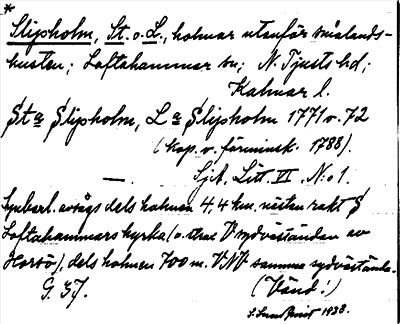 *
Slipholm, St. o. L., holmar utanför smålands-
kusten; Loftahammar sn; N. Tjusts hd;
Kalmar l.
Sta Slipholm, La Slipholm 1771 o. 72
(kop. o. förminsk. 1788).
— Sjk. Litt VI No 1.
Synbarl. avsågs dels holmen 4,4 km. nästan rakt S
Loftahammars kyrka (o. strax V sydväständan av
Horsö), dels holmen 700 m. VNV samma sydvästända.
G. 37. (Vänd!)
1938.